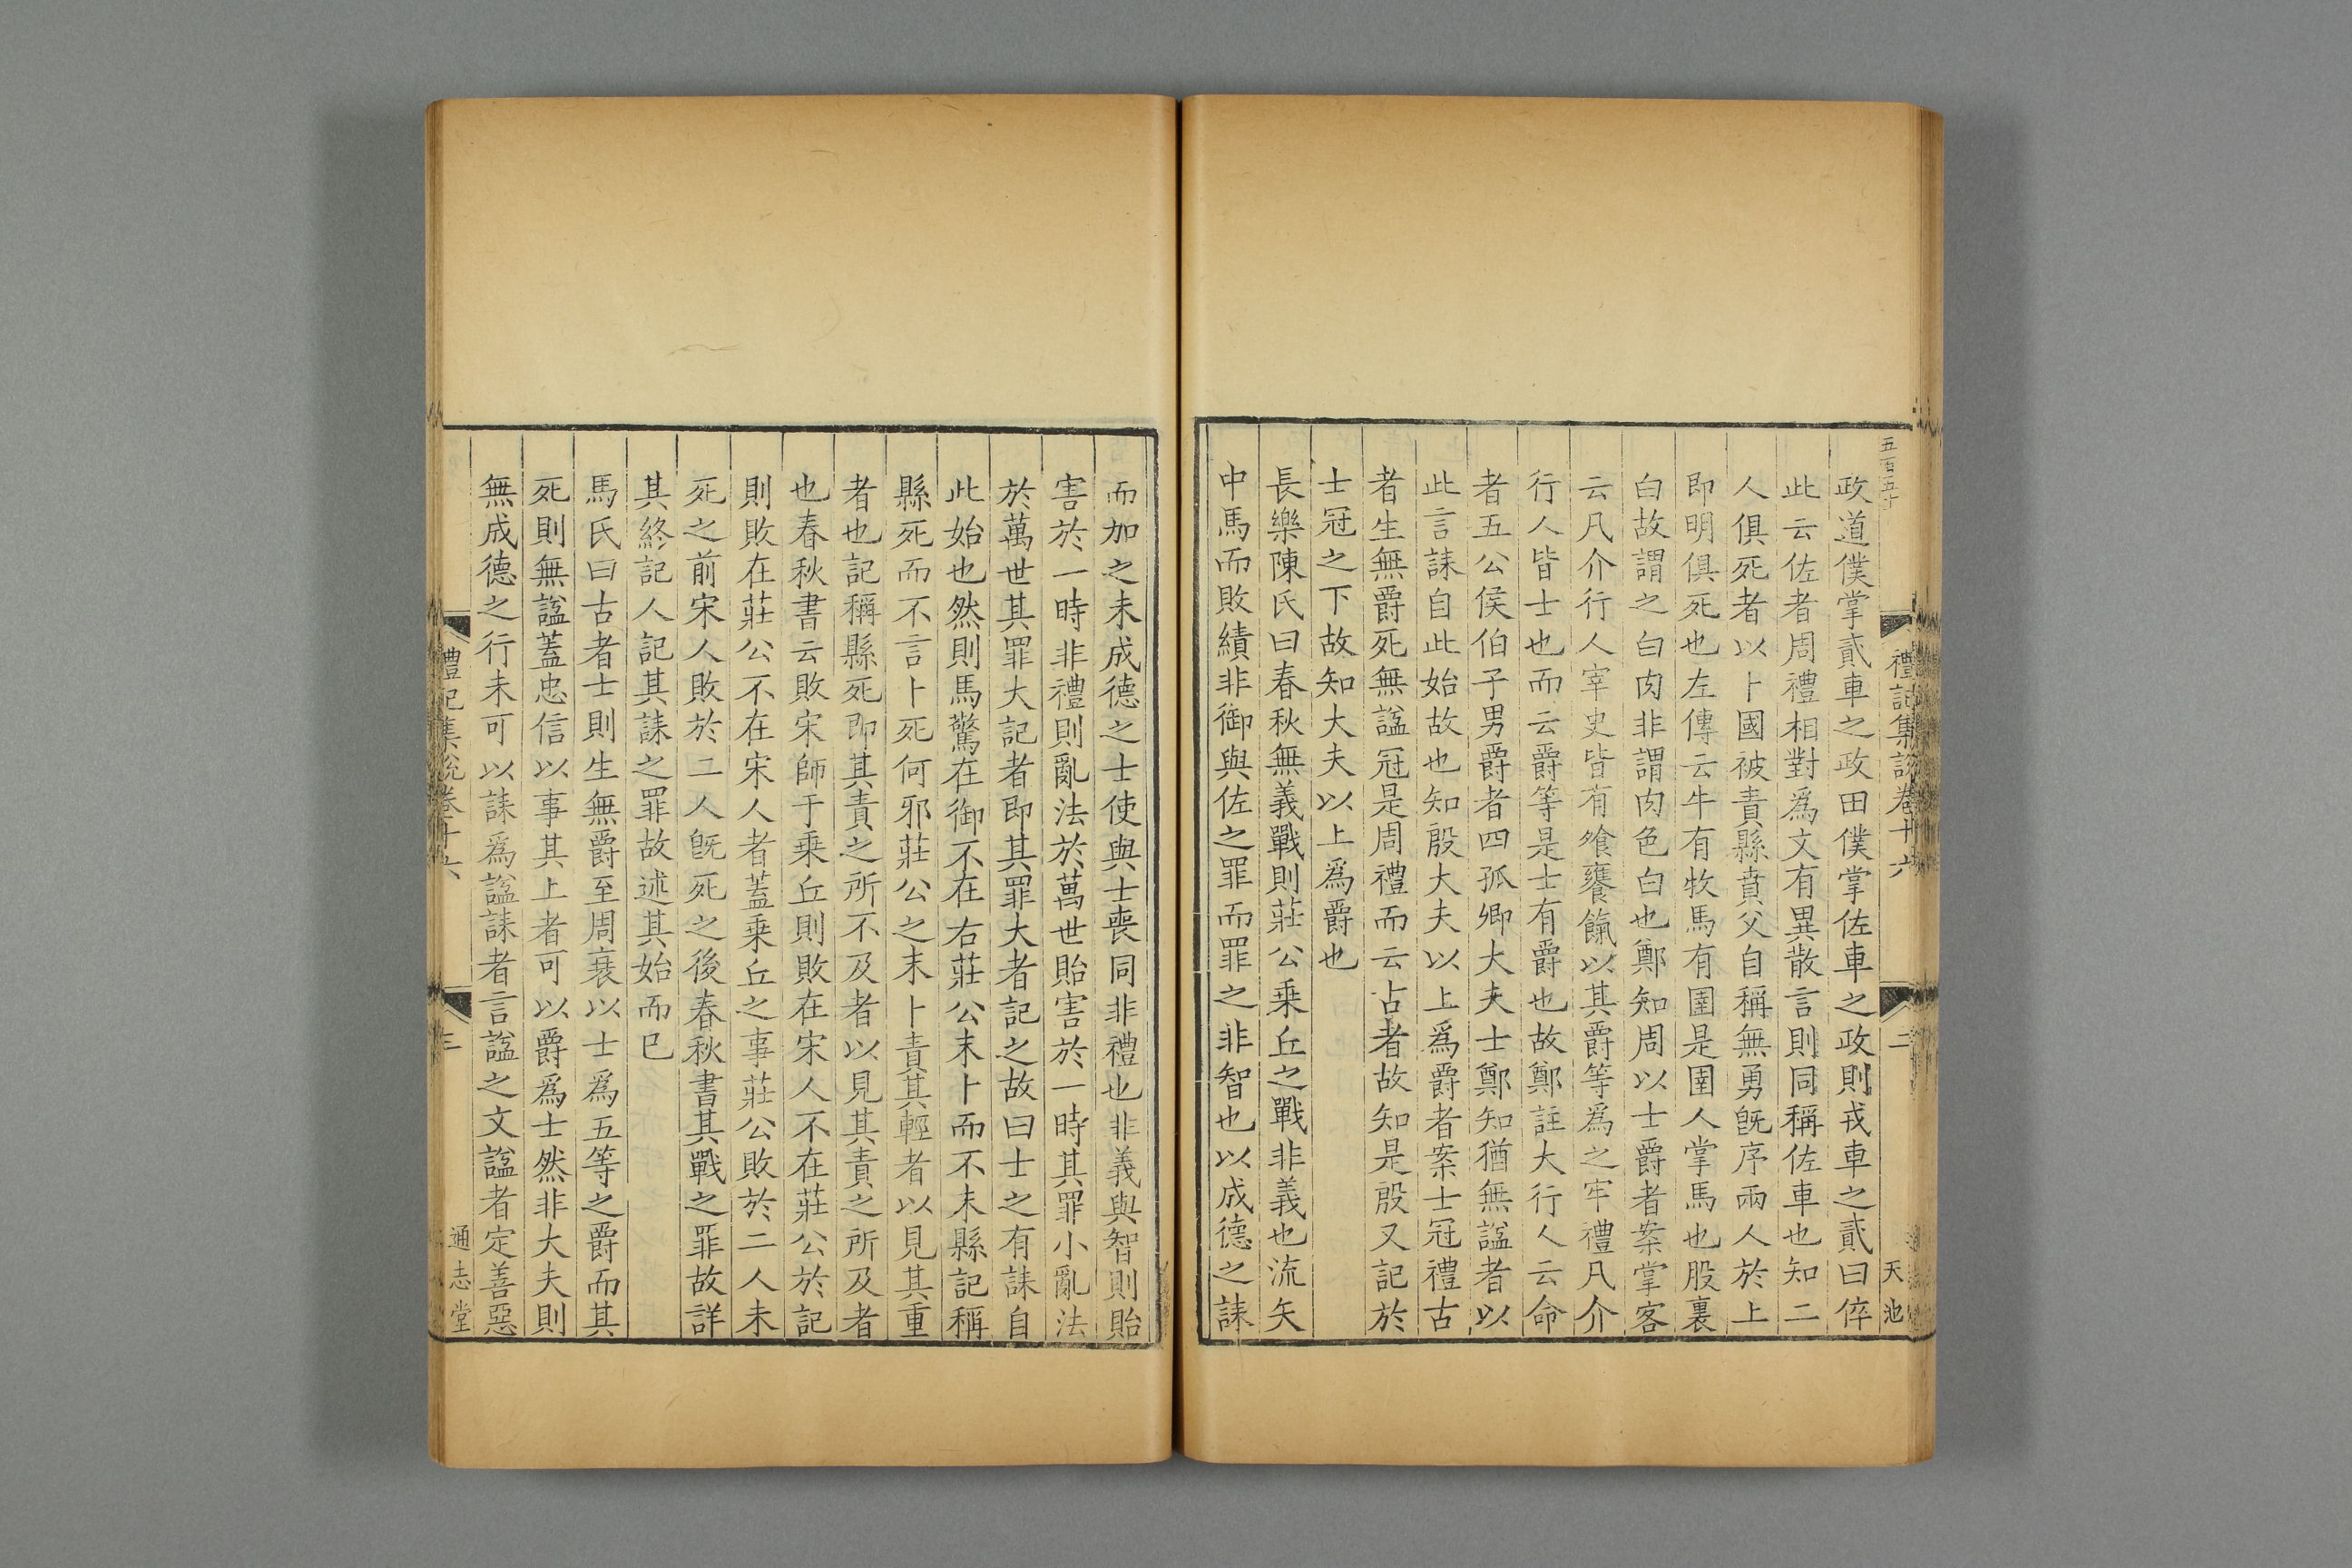 五百五十
禮記集說卷十六
二
天池
政道僕掌貳車之政田僕掌佐車之政則戎車之貳曰倅
此云佐者周禮相對爲文有異散言則同稱佐車也知二
人俱死者以卜國被責縣賁父自稱無勇旣序兩人於上
即明俱死也左傳云牛有牧馬有圉是圉人掌馬也股裏
白故謂之白肉非謂肉色白也鄭知周以士爵者案掌客
云凡介行人宰史皆有飧饔餼以其爵等爲之牢禮凡介
行人皆士也而云爵等是士有爵也故鄭註大行人云命
者五公侯伯子男爵者四孤卿大夫士鄭知猶無諡者以
此言誄自此始故也知殷大夫以上爲爵者案士冠禮古
者生無爵死無諡冠是周禮而云古者故知是殷又記於
士冠之下故知大夫以上爲爵也
長樂陳氏曰春秋無義戰則莊公乗丘之戰非義也流矢
中馬而敗績非御與佐之罪而罪之非智也以成德之誄
而加之未成德之士使與士喪同非禮也非義與智則貽
害於一時非禮則亂法於萬世貽害於一時其罪小亂法
於萬世其罪大記者即其罪大者記之故曰士之有誄自
此始也然則馬驚在御不在右莊公末卜而不末縣記稱
縣死而不言卜死何邪莊公之末卜責其輕者以見其重
者也記稱縣死即其責之所不及者以見其責之所及者
也春秋書云敗宋師于乗丘則敗在宋人不在莊公於記
則敗在莊公不在宋人者蓋乗丘之事莊公敗於二人未
死之前宋人敗於二人旣死之後春秋書其戰之罪故詳
其終記人記其誄之罪故述其始而已
馬氏曰古者士則生無爵至周衰以士爲五等之爵而其
死則無諡蓋忠信以事其上者可以爵爲士然非大夫則
無成德之行未可以誄爲諡誄者言諡之文諡者定善惡
禮記集說卷十六
三
通志堂